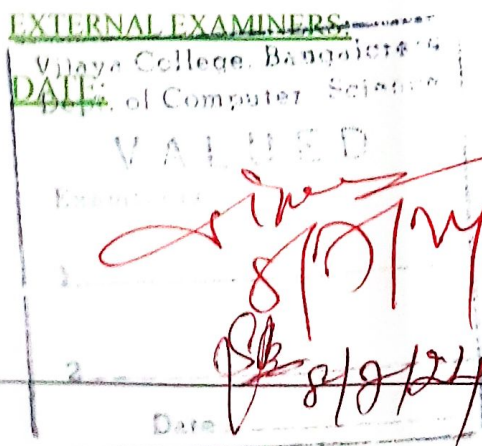 EXTERNAL EXAMINERS:
Vijaya College, Bangalore-4
DATE:
Dept. of Computer Science
VALUED
Examiners
1.
2.
8/2/24
Date